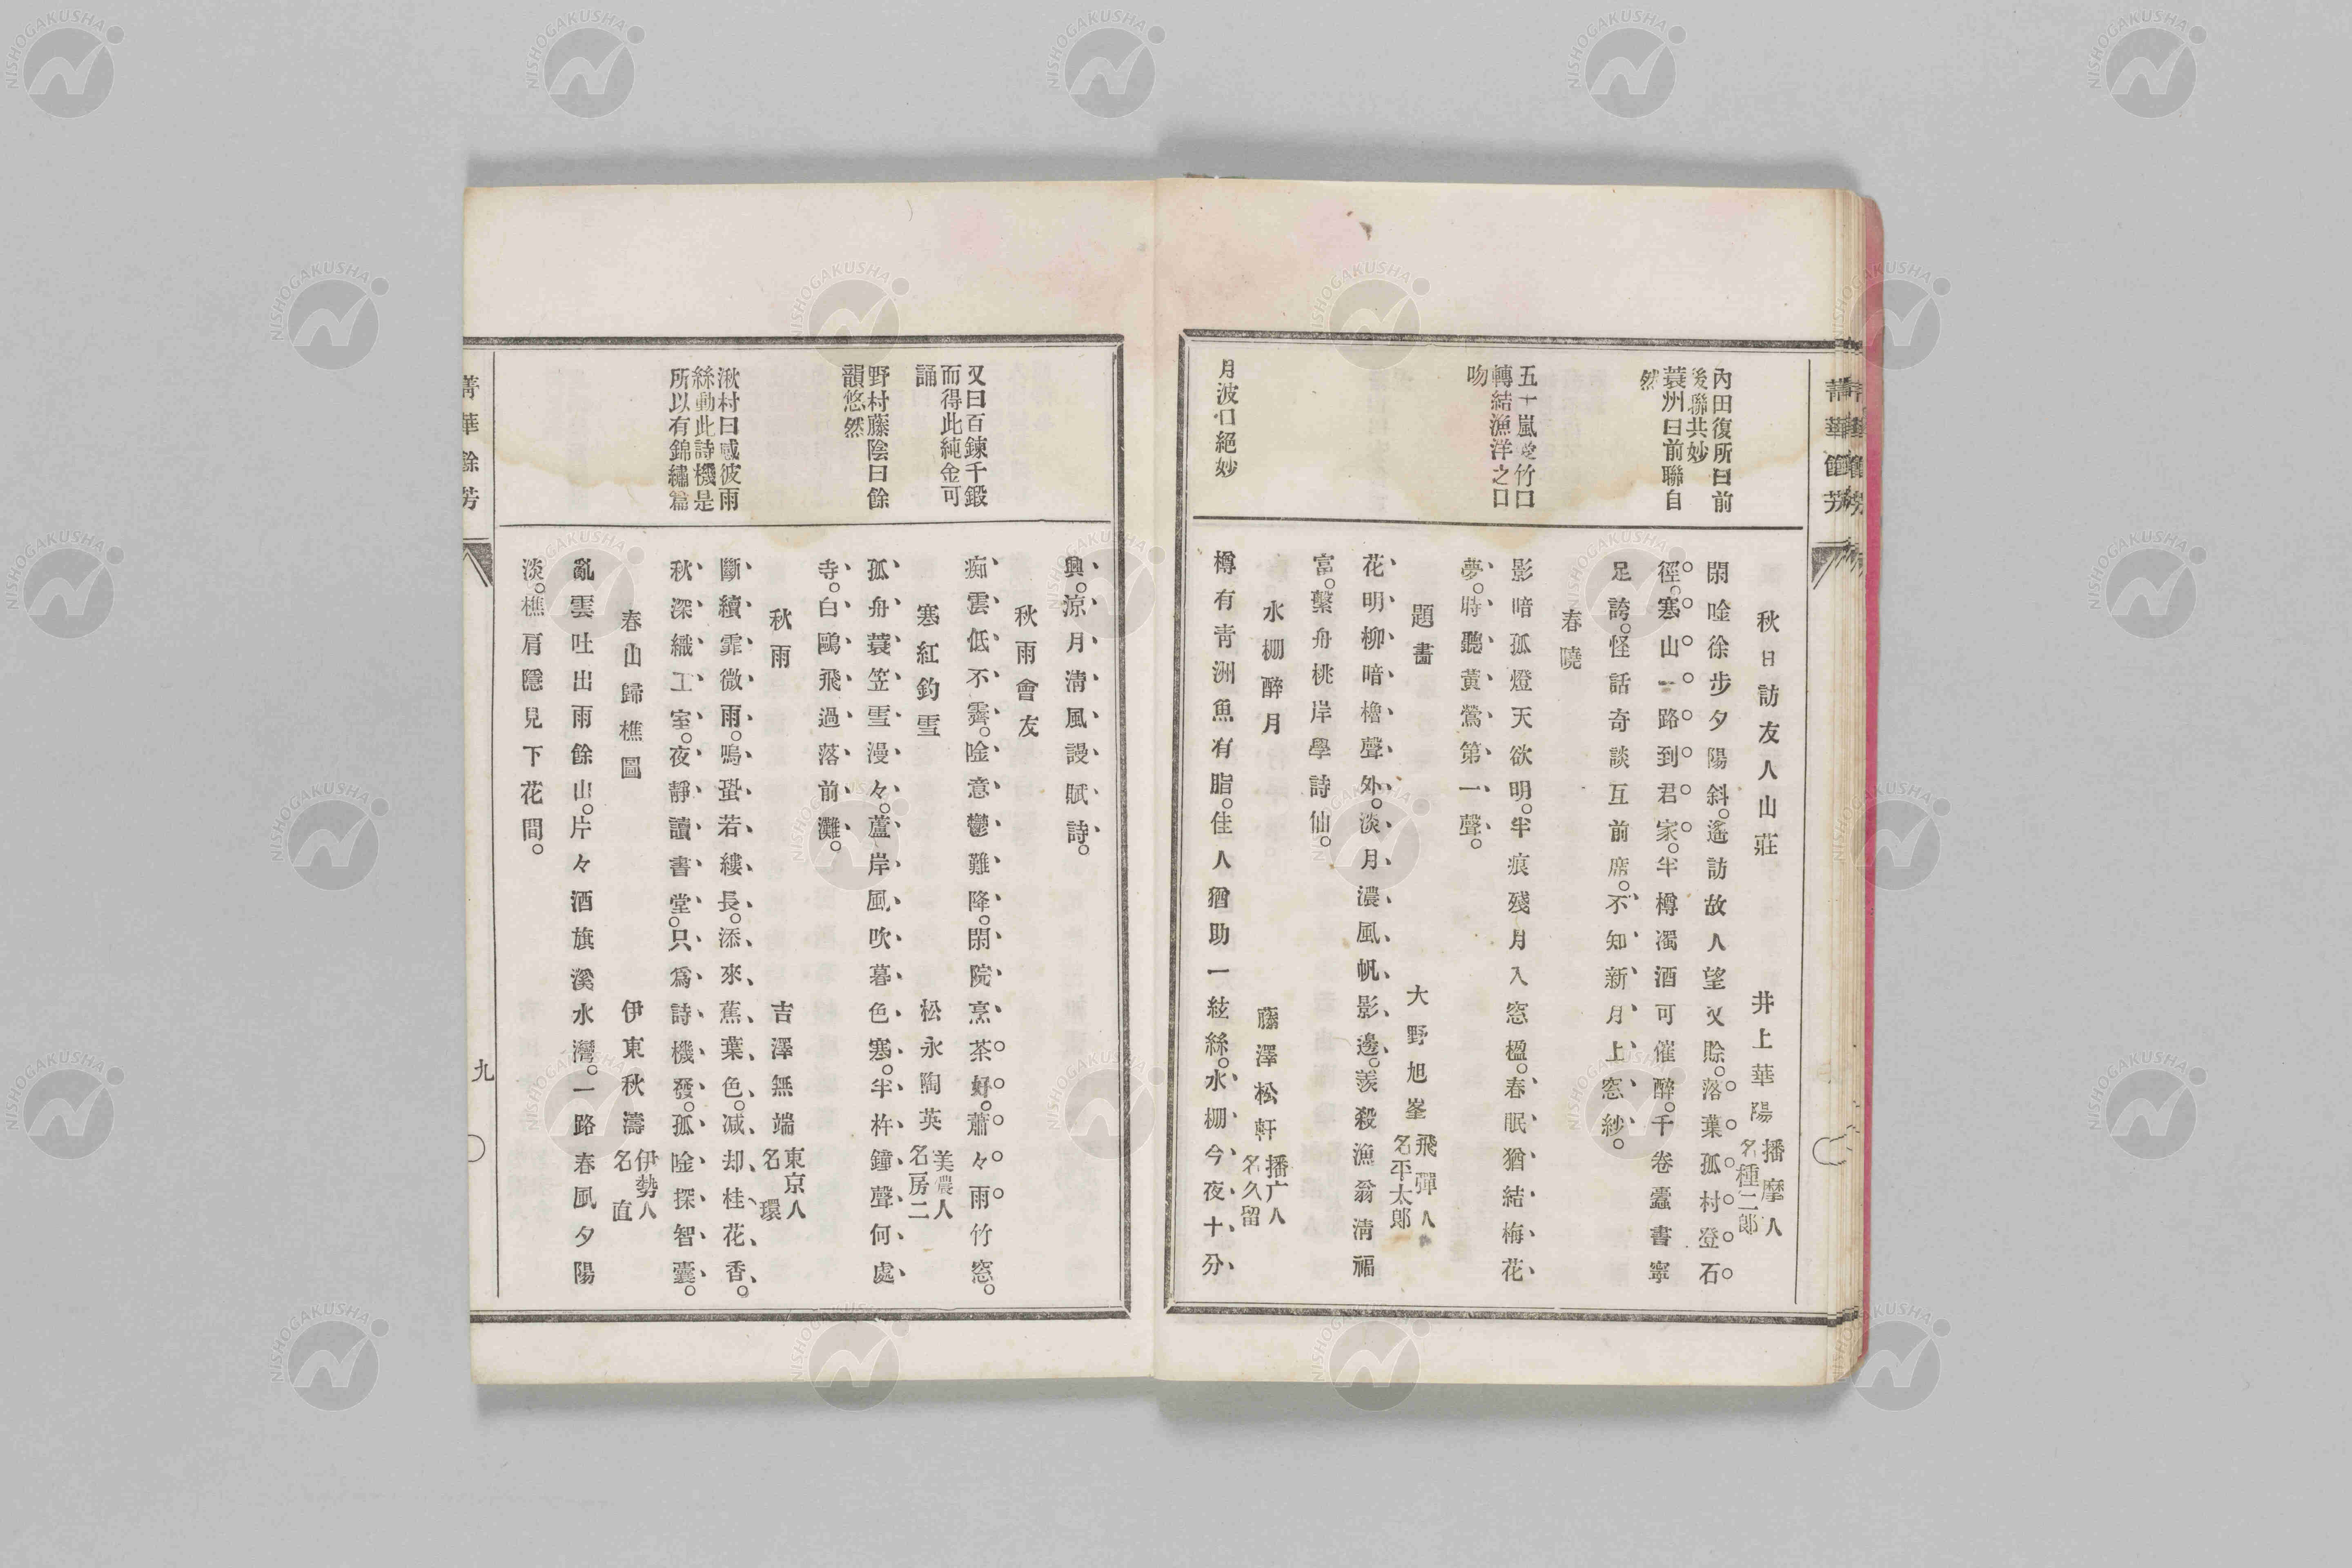 內田復所曰前
後聯共妙
蓑州曰前聯自
然
五十嵐愛竹曰
轉結漁洋之口
吻
月波曰絕妙
秋日訪友人山莊　井上華陽　播摩人　名種二郎
閑唫徐步夕陽斜。遙訪故人望又賒。落葉孤村登石
徑。寒山一路到君家。半樽濁酒可催醉。千卷蠹書寧
足誇。怪話奇談互前席。不知新月上窓紗。
春曉
影暗孤燈天欲明。半痕殘月入窓楹。春眠猶結梅花
夢。時聽黃鶯第一聲。
題畵　大野旭峯　飛彈人　名平太郎
花明柳暗櫓聲外。淡月濃風帆影邊。羨殺漁翁淸福
富。繫舟桃岸學詩仙。
水棚醉月　藤澤松軒　播广人　名久留
樽有靑洲魚有脂。佳人猶助一絃絲。水棚今夜十分
菁華餘芳
又曰百鍊千鍛
而得此純金可
誦
野村藤陰曰餘
韻悠然
湫村曰感彼雨
絲動此詩機是
所以有錦繡篇
興。凉月淸風謾賦詩。
秋雨會友
痴雲低不霽。唫意鬱難降。閑院烹茶好。蕭々雨竹窓。
寒紅釣雪　松永陶英　美濃人　名房二
孤舟蓑笠雪漫々。蘆岸風吹暮色寒。半杵鐘聲何處
寺。白鷗飛過落前灘。
秋雨　吉澤無端　東京人　名環
斷續霏微雨。鳴蛩若縷長。添來蕉葉色。减却桂花香。
秋深織工室。夜靜讀書堂。只爲詩機發。孤唫探智囊。
春山歸樵圖　伊東秋濤　伊勢人　名直
亂雲吐出雨餘山。片々酒旗溪水灣。一路春風夕陽
淡。樵肩隱見下花間。
菁華餘芳
九
NISHOGAKUSHA